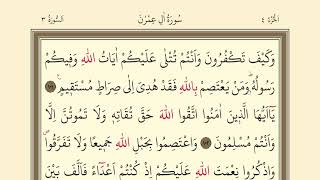 اَلْجُزْءُ ٤ سُورَةُ اٰلِ عِمْرٰنَ اَلسُّورَةُ ٣
وَكَيْفَ تَكْفُرُونَ وَاَنْتُمْ تُتْلٰى عَلَيْكُمْ اٰيَاتُ اللّٰهِ وَفِيكُمْ
رَسُولُهُۜ وَمَنْ يَعْتَصِمْ بِاللّٰهِ فَقَدْ هُدِيَ اِلٰى صِرَاطٍ مُسْتَقِيمٍ۟ ﴿١٠١﴾
يَٓا اَيُّهَا الَّذِينَ اٰمَنُوا اتَّقُوا اللّٰهَ حَقَّ تُقَاتِهِ وَلَا تَمُوتُنَّ اِلَّا
وَاَنْتُمْ مُسْلِمُونَ ﴿١٠٢﴾ وَاعْتَصِمُوا بِحَبْلِ اللّٰهِ جَمِيعًا وَلَا تَفَرَّقُواۖ
وَاذْكُرُوا نِعْمَتَ اللّٰهِ عَلَيْكُمْ اِذْ كُنْتُمْ اَعْدَٓاءً فَاَلَّفَ بَيْنَ